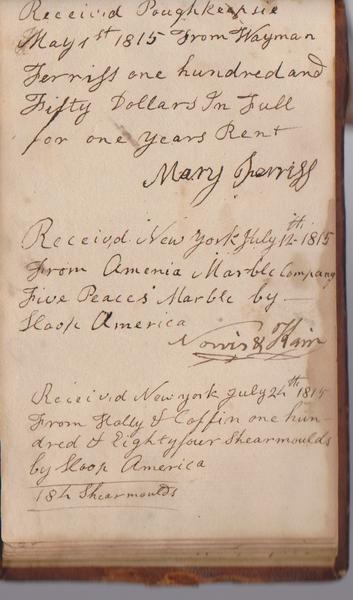 Receivd Poughkeepsie
May 1st 1815 From Wayman
Ferriss one hundred and
Fifty Dollars In Full
for one years Rent
Mary Ferriss
Receivd New York July 12th 1815
From Amenia Marble Company
Five Peaces Marble by
Sloop America
Norris & Kain
Receivd New york July 24th 1815
From Holly & Coffin one hun-
dred & Eightyfour Shearmoulds
by Sloop America
184 Shearmoulds